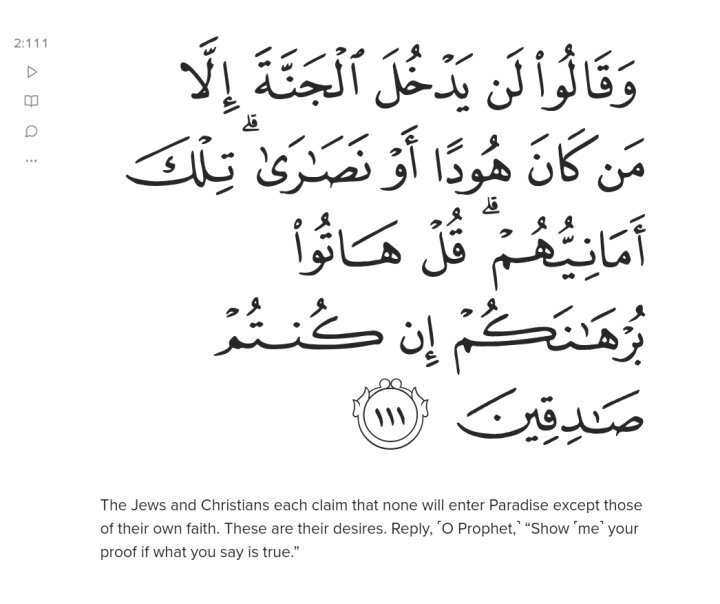 2:111
وَقَالُوا۟ لَن يَدْخُلَ ٱلْجَنَّةَ إِلَّا
مَن كَانَ هُودًا أَوْ نَصَـٰرَىٰ ۗ تِلْكَ
أَمَانِيُّهُمْ ۗ قُلْ هَاتُوا۟
بُرْهَـٰنَكُمْ إِن كُنتُمْ
صَـٰدِقِينَ ١١١
The Jews and Christians each claim that none will enter Paradise except those
of their own faith. These are their desires. Reply, ˹O Prophet,˺ “Show ˹me˺ your
proof if what you say is true.”